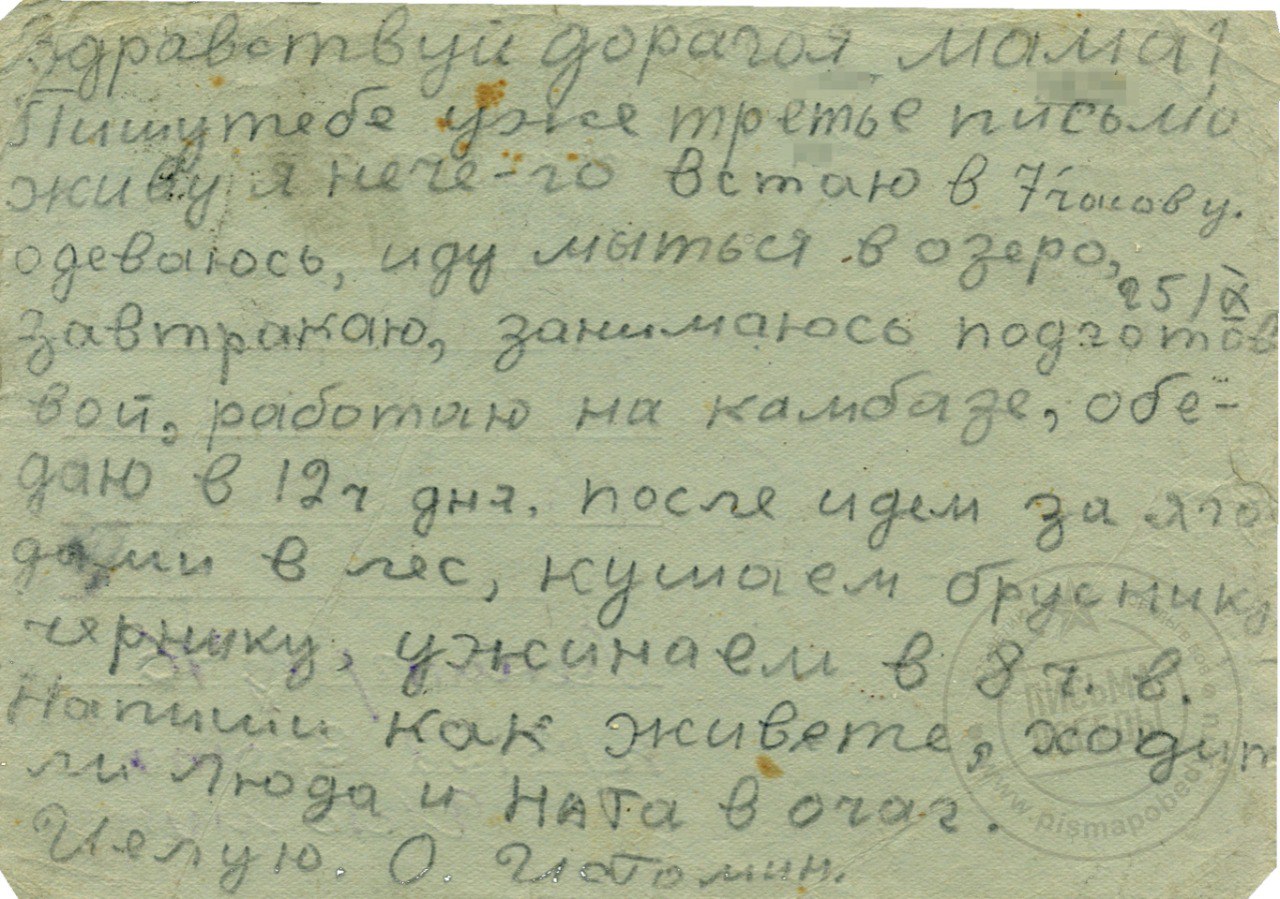 Здравствуй дорагоя мама!
Пишу тебе уже третье письмо
живу я нече-го встаю в 7 часов у.
одеваюсь, иду мыться в озеро,
25/IX
завтракаю, занимаюсь подготов
вой, работаю на камбазе, обе-
даю в 12ч дня. после идем за яго
дами в лес, кушаем бруснику
чернику, ужинаем в 8 ч. в.
Напиши как живете, ходит
ли Люда и Ната в очаг.
Целую. О. Истомин.
ПИСЬМА
ПОБЕДЫ
www.pismapobed